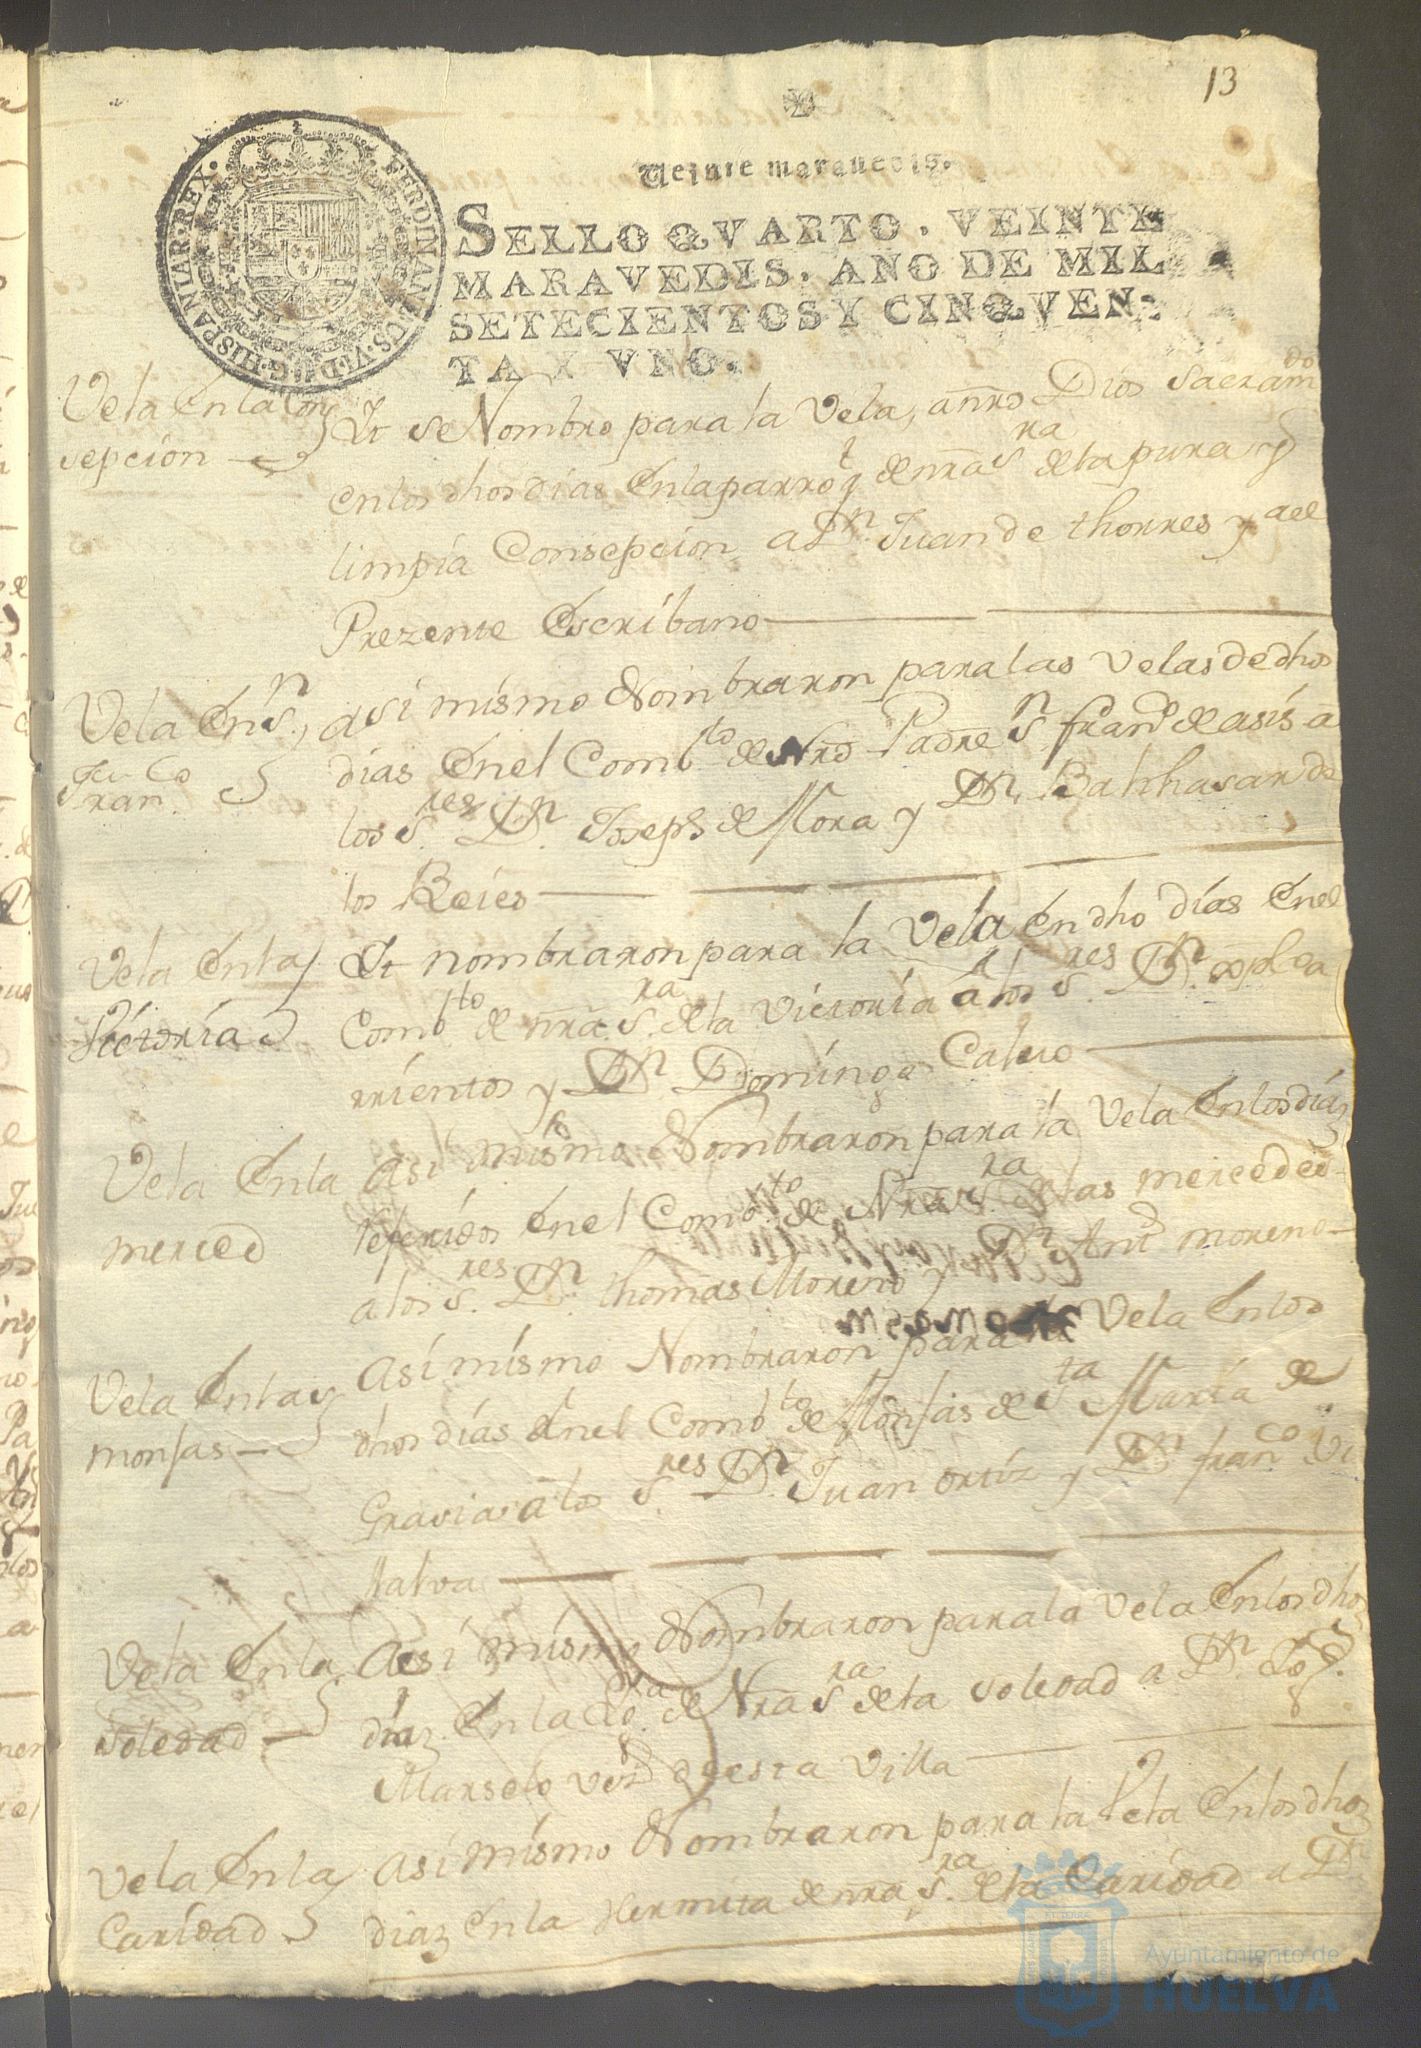 13
Veinte maravedis.
SELLO QVARTO, VEINTE
MARAVEDIS, AÑO DE MIL
SETECIENTOS Y CINQVEN-
TA Y VNO.
FERDINANDUS.VI.D.G.HISPANIAR.REX.
Vela en la Con
sepcion
Yt se Nombro para la Vela, a nrô Dios Sacramdo
en los dhos dias en la parroqt de nrâ Sra de la pura y
limpia Consepcion a Dn. Juan de thorres y a el
Prezente Escribano
Vela en Sn.
Franco.
asi mismo Nombraron para las Velas de dhos
dias en el Combto de Nrô Padre Sn. Frano de asis a
los Sres. Dn. Joseph de Mora y Dn. Balthasar de
los Reies
Vela en la
Victoria
Yt nombraron para la Vela en dho dias en el
Combto de nrâ Sra. de la Victoria a los Sres. Dn.
rrientos y Dn. Domingo Calvo
Vela en la
merced
asi mismo Nombraron para la Vela en los dias
referidos en el Combto de Nrâ Sra de las mercedes
a los Sres. Dn. thomas Moreno y Dn Anto moreno
Vela en las
monjas
asi mismo Nombraron para la Vela en los
dhos dias en el Combto de Monjas de Sta Maria de
Gracia a los Sres Dn. Juan ortiz y Dn franco Vi
llalva
Vela en la
soledad
Asi mismo Nombraron para la Vela en los dhos
diaz en la de Nrâ Sra de la soledad a Dn.
Marselo vezo de esta Villa
Vela en la
Caridad
asi mismo Nombraron para la Vela en los dhoz
diaz en la Hermita de nrâ Sra. de la Caridad a Dn
Ayuntamiento de
HUELVA